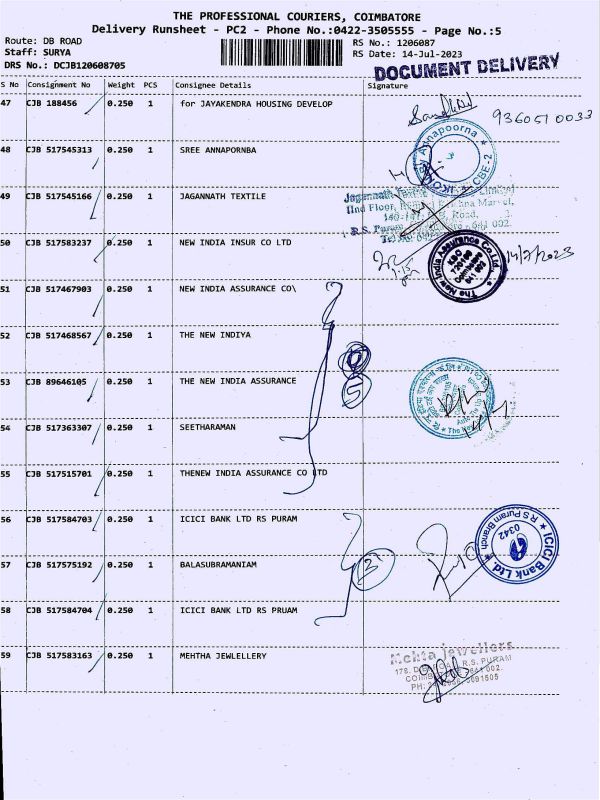 THE PROFESSIONAL COURIERS, COIMBATORE
Delivery Runsheet - PC2 - Phone No.:0422-3505555 - Page No.:5
Route: DB ROAD
RS No.: 1206087
Staff: SURYA
RS Date: 14-Jul-2023
DRS No.: DCJB120608705
DOCUMENT DELIVERY
S No Consignment No Weight PCS Consignee Details Signature
47 CJB 188456 0.250 1 for JAYAKENDRA HOUSING DEVELOP
9360510033
48 CJB 517545313 0.250 1 SREE ANNAPORNBA
Annapoorna
CBE-2
49 CJB 517545166 0.250 1 JAGANNATH TEXTILE
Jagannath
IInd Floor,
Road,
R.S. Puram
641 002.
50 CJB 517583237 0.250 1 NEW INDIA INSUR CO LTD
The New India Assurance Co. Ltd.
720100
Coimbatore
641 002
14/7/2023
51 CJB 517467903 0.250 1 NEW INDIA ASSURANCE CO\
52 CJB 517468567 0.250 1 THE NEW INDIYA
5
53 CJB 89646105 0.250 1 THE NEW INDIA ASSURANCE
54 CJB 517363307 0.250 1 SEETHARAMAN
55 CJB 517515701 0.250 1 THENEW INDIA ASSURANCE CO LTD
56 CJB 517584703 0.250 1 ICICI BANK LTD RS PURAM
ICICI Bank Ltd.
R S Puram Branch
0342
57 CJB 517575192 0.250 1 BALASUBRAMANIAM
3
58 CJB 517584704 0.250 1 ICICI BANK LTD RS PRUAM
59 CJB 517583163 0.250 1 MEHTHA JEWLELLERY
Mehta jewellers
178, D.B. ROAD, R.S. PURAM
COIMBATORE - 641 002.